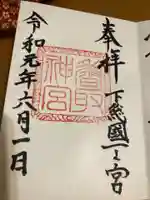 奉拝
下総國一之宮
香取
神宮
令和元年六月一日